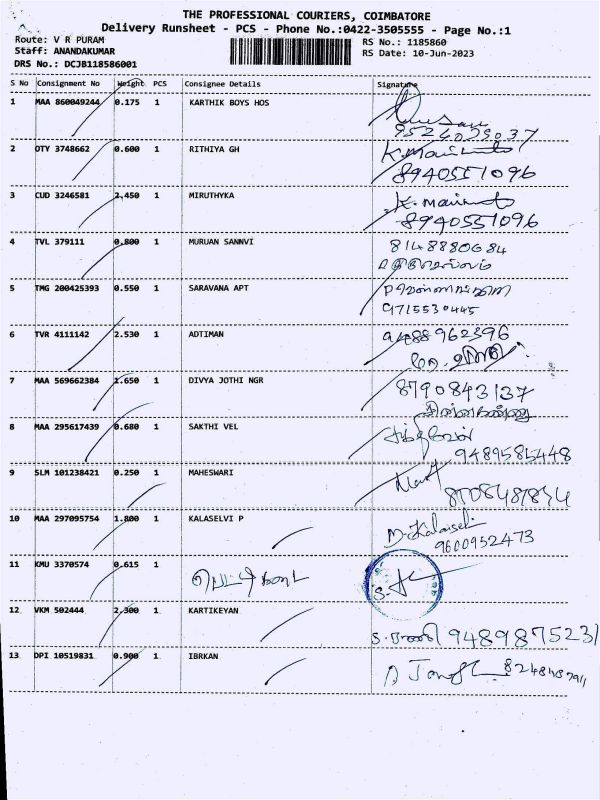 THE PROFESSIONAL COURIERS, COIMBATORE
Delivery Runsheet - PCS - Phone No.:0422-3505555 - Page No.:1
Route: V R PURAM
RS No.: 1185860
Staff: ANANDAKUMAR
RS Date: 10-Jun-2023
DRS No.: DCJB118586001
S No Consignment No Weight PCS Consignee Details Signature
1 MAA 860049244 0.175 1 KARTHIK BOYS HOS
9524039037
2 OTY 3748662 0.600 1 RITHIYA GH
8940551096
3 CUD 3246581 2.450 1 MIRUTHYKA
8940551096
4 TVL 379111 0.800 1 MURUAN SANNVI 8148880684
5 TMG 200425393 0.550 1 SARAVANA APT
9715530445
6 TVR 4111142 2.530 1 ADTIMAN 9488962396
7 MAA 569662384 1.650 1 DIVYA JOTHI NGR 8790843137
8 MAA 295617439 0.680 1 SAKTHI VEL சக்திவேல்
9489585448
9 SLM 101238421 0.250 1 MAHESWARI
10 MAA 297095754 1.800 1 KALASELVI P
9600952473
11 KMU 3370574 0.615 1 பெட்டிகடை
12 VKM 502444 2.300 1 KARTIKEYAN S. ராணி 9489875231
13 DPI 10519831 0.900 1 IBRKAN